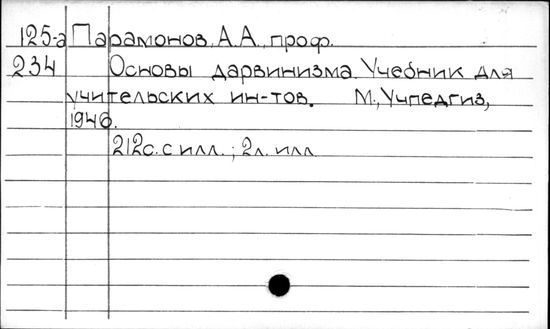 125-а Парамонов, А.А., проф.
234 Основы дарвинизма. Учебник для
учительских ин-тов. М., Учпедгиз,
1946.
212с. с илл.; 2л. илл.